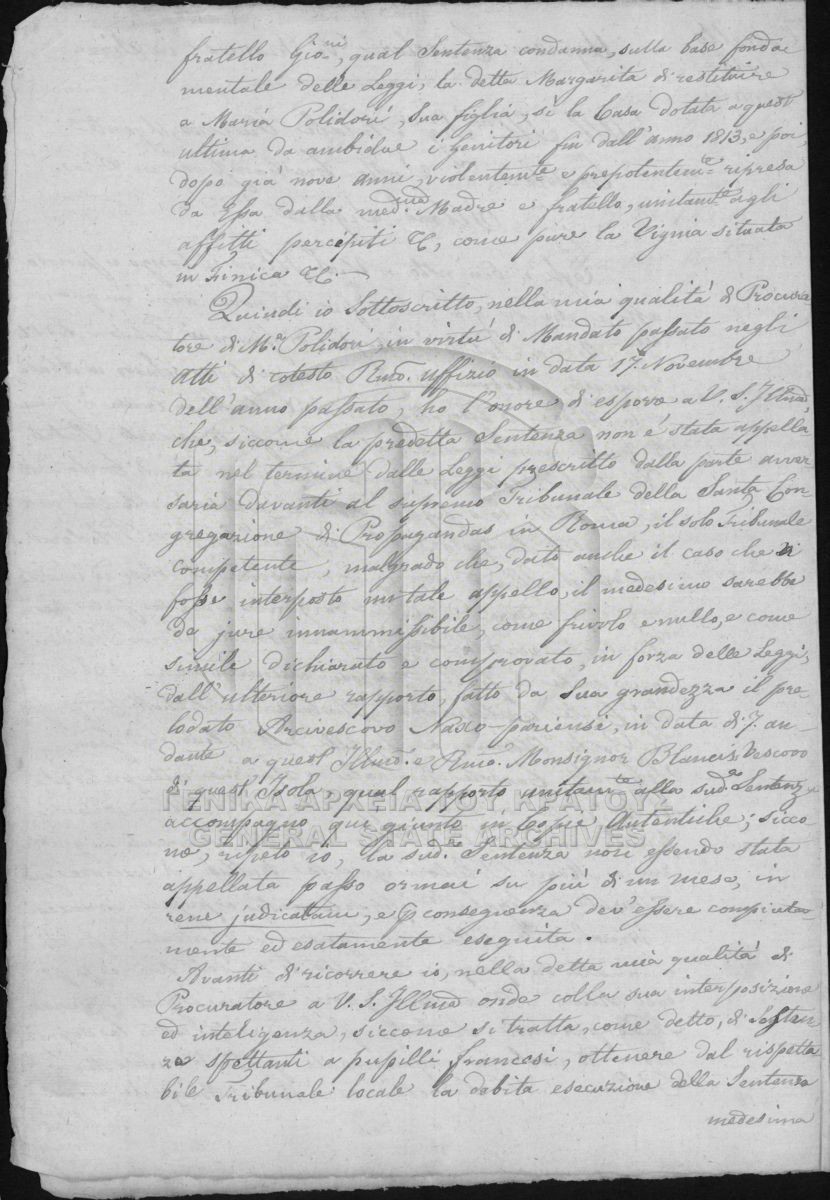 fratello Gio.ni, qual Sentenza condanna, sulla base fonda
mentale delle Leggi, la detta Margarita di restituire
a Maria Polidori, sua figlia, sì la Casa dotata a quest'
ultima da ambidue i Genitori fin dall'anno 1813, e poi,
dopo già nove anni, violentemte e prepotentemte ripresa
da Essa dalla medma Madre e fratello, unitamte agli
affitti percepiti &, come pure la Vignia situata
in Finica &c. —
Quindi io Sottoscritto, nella mia qualità di Procura
tore di Ma Polidori, in virtù di Mandato passato negli
Atti di cotesto Rmo. uffizio in data 17. Novembre
dell'anno passato, ho l'onore di esporre a V. S. Illma,
che, siccome la predetta Sentenza non è stata appella
ta nel termine dalle Leggi prescritto dalla parte avver
saria davanti al supremo Tribunale della Santa Con
gregazione di Propagandas in Roma, il solo Tribunale
competente, malgrado che, dato anche il caso che si
fosse interposto un tale appello, il medesimo sarebbe
de jure innammissibile, come frivolo e nullo, e come
simile dichiarato e comprovato, in forza delle Leggi,
dall'ulteriore rapporto, fatto da Sua grandezza il pre
lodato Arcivescovo Naxo-pariensi, in data di 7. an-
dante a quest' Illmo. e Rmo. Monsignor Blancis Vescovo
di quest' Isola, qual rapporto unitamte alla sudta Sentenza
accompagno qui giunto in Copie Autentiche; sicco
me, ripeto io, la suda Sentenza non essendo stata
appellata passò ormai su più di un mese, in
rem judicatam, e p conseguenza dev'essere compiuta-
mente ed esatamente eseguita.
Avanti di ricorrere io, nella detta mia qualità di
Procuratore a V. S. Illma onde colla sua interposizione
ed inteligenza, siccome si tratta, come detto, di Sostan
ze spettanti a pupilli francesi, ottenere dal rispetta
bile Tribunale locale la debita esecuzione della Sentenza
medesima
ΓΕΝΙΚΑ ΑΡΧΕΙΑ ΤΟΥ ΚΡΑΤΟΥΣ
GENERAL STATE ARCHIVES